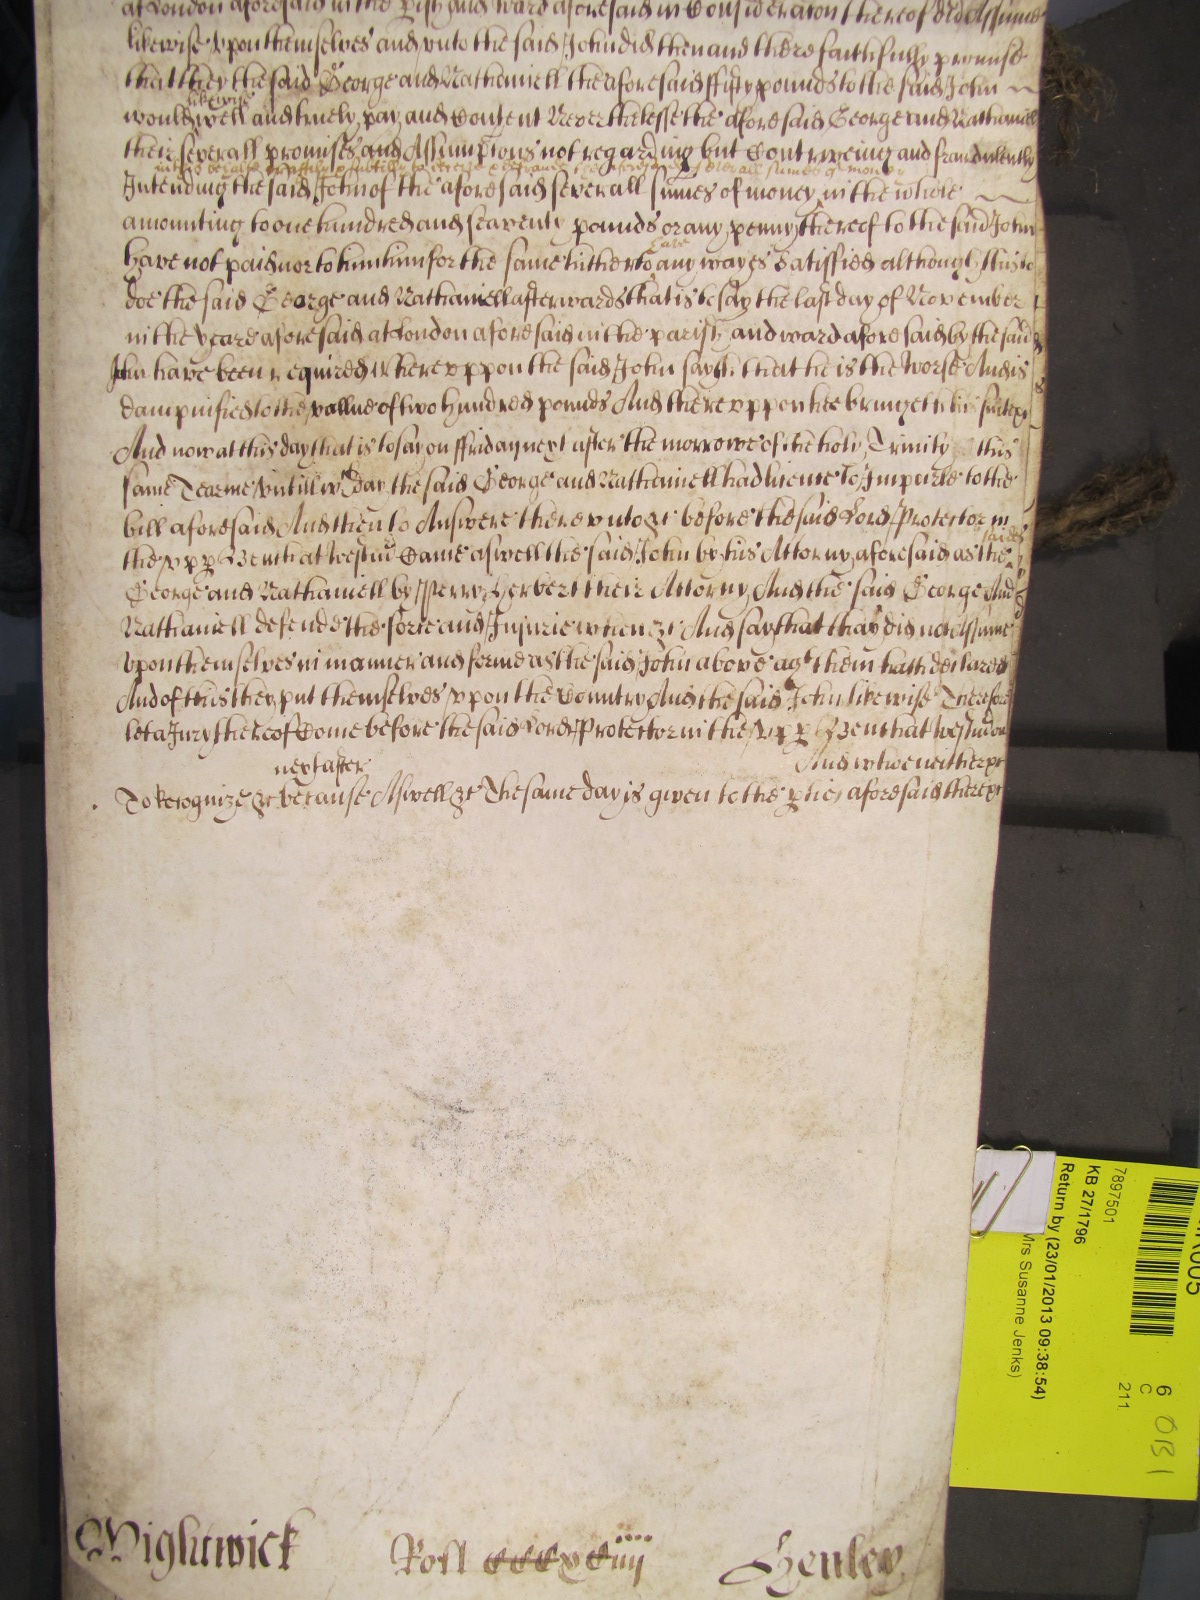 at London aforesaid in the pish and ward aforesaid in Consideracon thereof did Assume
likewise vpon themselves and vnto the said John did then and there faithfully promise
that they the said George and Nathaniell the aforesaid ffifty pounds to the said John
likewise
would well and truely pay and Content Neverthelesse the aforesaid George and Nathaniell
their severall promises and Assumptions not regarding but Contriveing and fraudulently
in this behalfe craftily & subtilly to deceive & defraude the aforesaid severall sumes of money
Intending the said John of the aforesaid severall sumes of money in the whole
amounting to one hundred and seaventy pounds or any penny thereof to the said John
have
have not paid nor to him him for the same hitherto any wayes satisfied although this to
doe the said George and Nathaniell afterwards that is to say the last day of November
in the yeare aforesaid at London aforesaid in the parish and ward aforesaid by the said
John have been required Wherevppon the said John sayth that he is the worse And is
dampnified to the vallue of two hundred pounds And therevppon hee bringeth his suite &c
And now at this day that is to say on ffriday next after the morrowe of the holy Trinity this
same Tearme vntill wch day the said George and Nathaniell had licence To Imparle to the
bill aforesaid And then to Answere therevnto &c before the said Lord Protector in
saides
the vpp Bench at Westm Came aswell the said John by his Attorny aforesaid as the
George and Nathaniell by Perry Herbert their Attorny And the said George And
Nathaniell defend the force and Injurie when &c And say that they did not Assume
vpon themselves in manner and forme as the said John above agt them hath declared
And of this they put themselves vpon the Countrey And the said John likewise Therefore
let a Jury thereof Come before the said Lord Protector in the vpp Bench at Westm on
next after And who neither &c
To Recognize &c because Aswell &c The same day is given to the pties aforesaid there &c
Wightwick Roll CCCxCiiij Henley
7897501
KB 27/1796
Return by (23/01/2013 09:38:54)
Mrs Susanne Jenks)
6
C
211
OB1